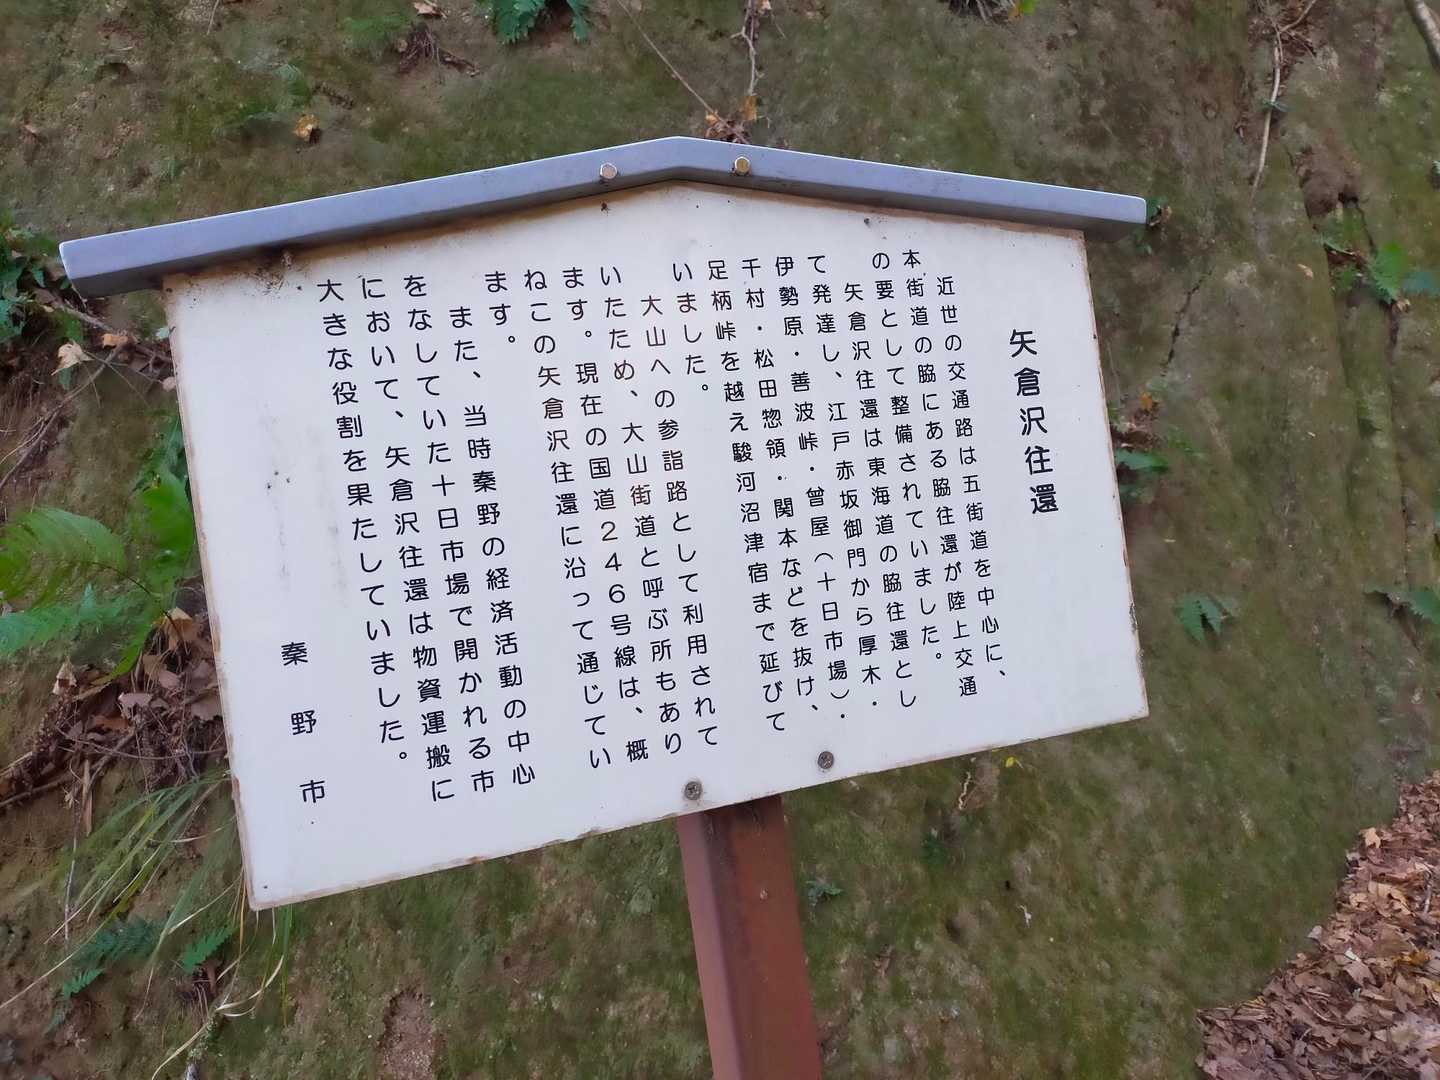 矢倉沢往還
近世の交通路は五街道を中心に、
本街道の脇にある脇往還が陸上交通
の要として整備されていました。
矢倉沢往還は東海道の脇往還とし
て発達し、江戸赤坂御門から厚木・
伊勢原・善波峠・曽屋（十日市場）・
千村・松田惣領・関本などを抜け、
足柄峠を越え駿河沼津宿まで延びて
いました。
大山への参詣路として利用されて
いたため、大山街道と呼ぶ所もあり
ます。現在の国道２４６号線は、概
ねこの矢倉沢往還に沿って通じてい
ます。
また、当時秦野の経済活動の中心
をなしていた十日市場で開かれる市
において、矢倉沢往還は物資運搬に
大きな役割を果たしていました。
秦野市